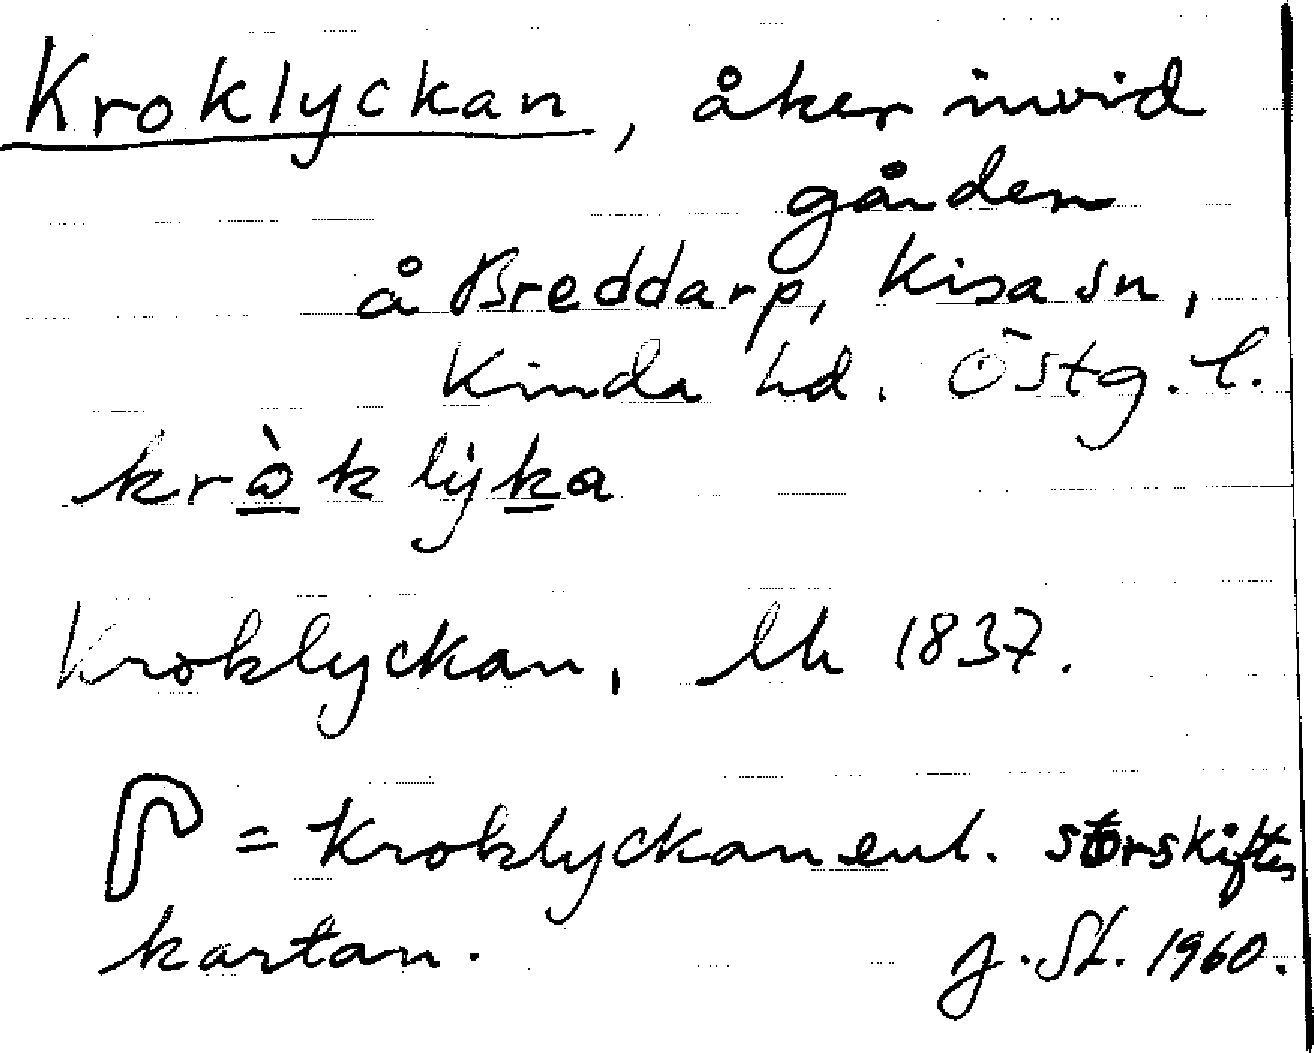 Kroklyckan, åker invid
gården
å Breddarp, Kisa sn,
Kinda hd. Östg. l.
krò̲k lýk̲a
Kroklyckan, lh 1837.
= Kroklyckan enl. storskiftes
kartan. J. St. 1960.